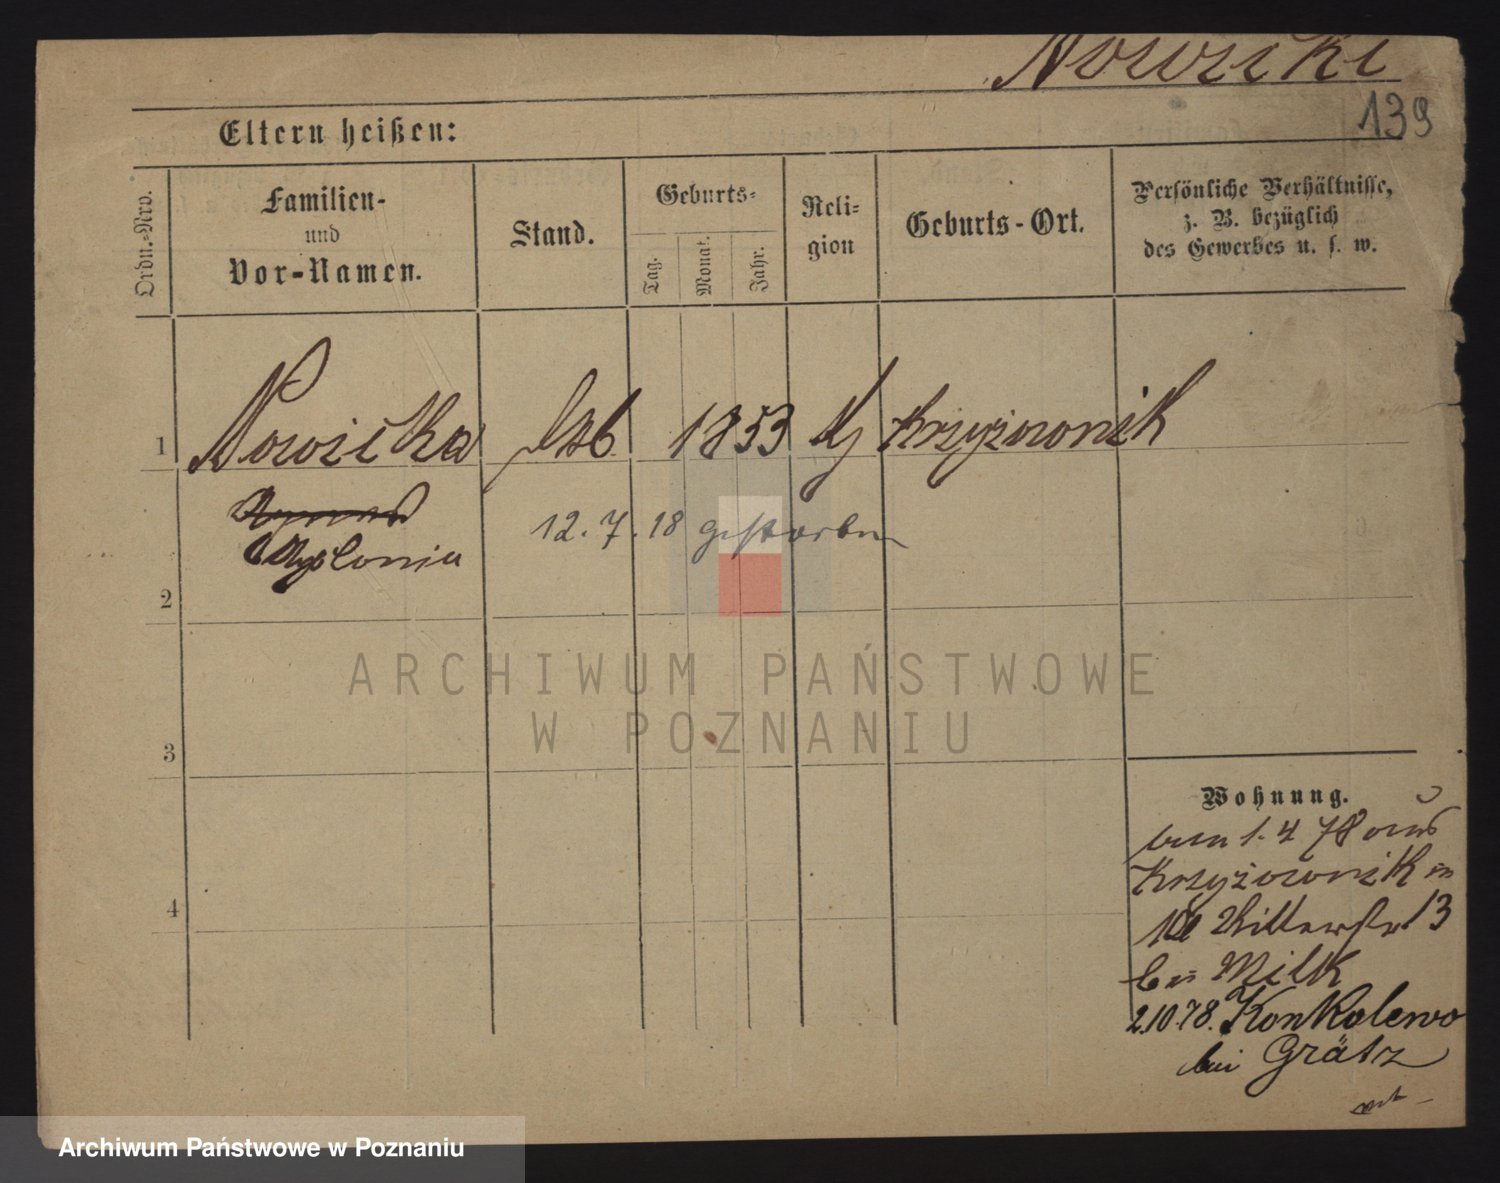 Nowicki
139
Eltern heißen:
Ordn.-Nro.
Familien-
und
Vor-Namen.
Stand.
Geburts-
Tag.
Monat.
Jahr.
Reli-
gion
Geburts-Ort.
Persönliche Verhältnisse,
z. B. bezüglich
des Gewerbes u. s. w.
1
Nowicka
1853
Krzyżownik
Apolonia
12. 7. 18 gestorben
2
ARCHIWUM PAŃSTWOWE
W POZNANIU
3
Wohnung.
1. 4 78 aus
Krzyżownik in
13
bei Milk
4
2.10.78. Konkolewo
bei Grätz
Archiwum Państwowe w Poznaniu